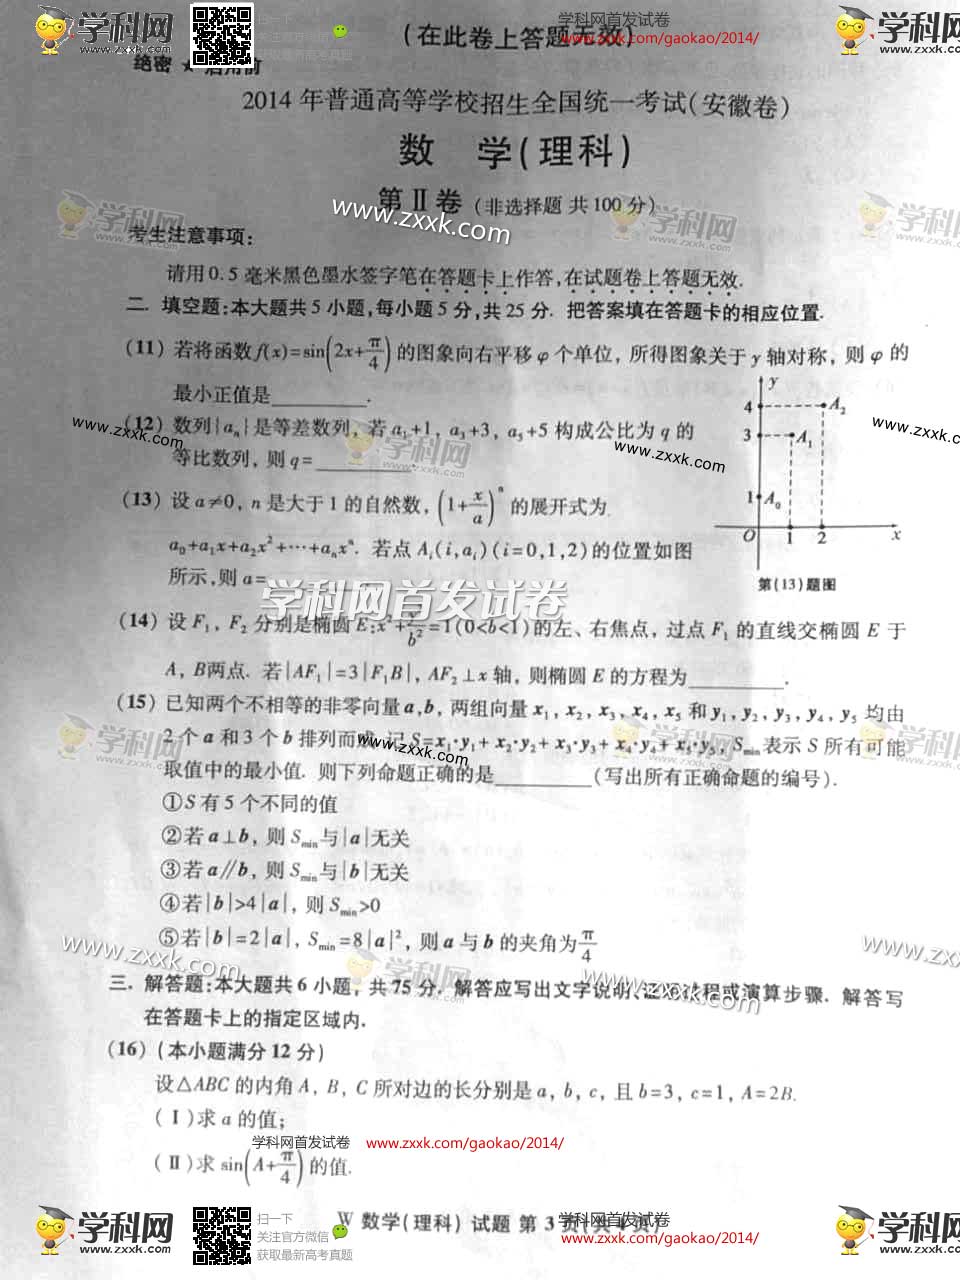 学科网 www.zxxk.com
扫一下
关注官方微信
获取最新高考真题
(在此卷上答题无效)
学科网首发试卷
www.zxxk.com/gaokao/2014/
学科网 www.zxxk.com
绝密 ★ 启用前
2014 年普通高等学校招生全国统一考试(安徽卷)
数 学(理科)
第 II 卷 (非选择题 共 100 分)
www.zxxk.com
考生注意事项:
请用 0.5 毫米黑色墨水签字笔在答题卡上作答,在试题卷上答题无效.
二. 填空题:本大题共 5 小题,每小题 5 分,共 25 分. 把答案填在答题卡的相应位置.
(11) 若将函数 f(x)=sin(2x+π/4) 的图象向右平移 φ 个单位, 所得图象关于 y 轴对称, 则 φ 的
最小正值是________.
(12) 数列{aₙ}是等差数列, 若 a₁+1, a₃+3, a₅+5 构成公比为 q 的
等比数列, 则 q=________.
(13) 设 a≠0, n 是大于 1 的自然数, (1+x/a)ⁿ 的展开式为
a₀+a₁x+a₂x²+…+aₙxⁿ. 若点 Aᵢ(i,aᵢ)(i=0,1,2)的位置如图
所示,则 a=________
y
4
A₂
3
A₁
1
A₀
O
1
2
x
第(13)题图
学科网首发试卷
(14) 设 F₁, F₂ 分别是椭圆 E:x²+y²/b²=1(0<b<1)的左、右焦点, 过点 F₁ 的直线交椭圆 E 于
A, B两点. 若|AF₁|=3|F₁B|, AF₂⊥x 轴, 则椭圆 E 的方程为________
(15) 已知两个不相等的非零向量 a,b, 两组向量 x₁, x₂, x₃, x₄, x₅ 和 y₁, y₂, y₃, y₄, y₅ 均由
2 个 a 和 3 个 b 排列而成. 记 S=x₁·y₁+x₂·y₂+x₃·y₃+x₄·y₄+x₅·y₅, Smin 表示 S 所有可能
取值中的最小值. 则下列命题正确的是________(写出所有正确命题的编号).
①S 有 5 个不同的值
②若 a⊥b, 则 Smin 与|a|无关
③若 a∥b, 则 Smin 与|b|无关
④若|b|>4|a|, 则 Smin>0
⑤若|b|=2|a|, Smin=8|a|², 则 a 与 b 的夹角为π/4
三. 解答题:本大题共 6 小题, 共 75 分. 解答应写出文字说明、证明过程或演算步骤. 解答写
在答题卡上的指定区域内.
(16) (本小题满分 12 分)
设△ABC 的内角 A, B, C 所对边的长分别是 a, b, c, 且 b=3, c=1, A=2B.
(Ⅰ)求 a 的值;
学科网首发试卷 www.zxxk.com/gaokao/2014/
(Ⅱ)求 sin(A+π/4)的值.
学科网 www.zxxk.com
扫一下
关注官方微信
获取最新高考真题
W 数学(理科) 试题 第 3 页(共 4 页)
学科网首发试卷
www.zxxk.com/gaokao/2014/
学科网 www.zxxk.com